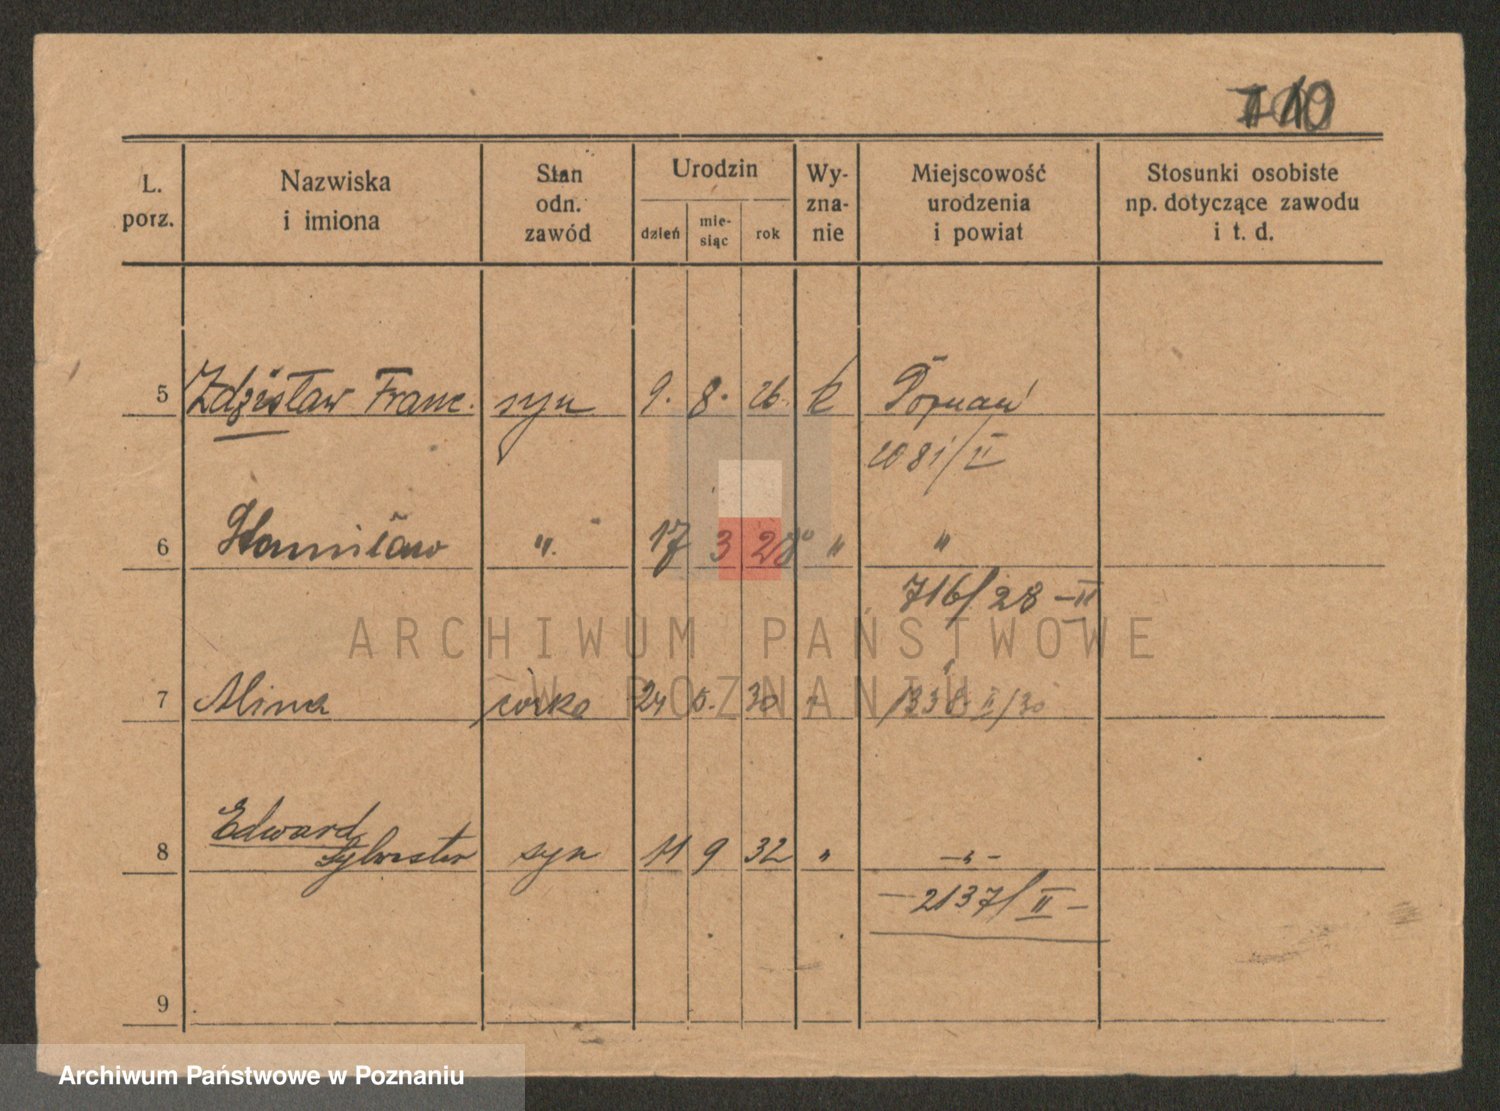 L. porz.
Nazwiska i imiona
Stan odn. zawód
Urodzin
dzień
mie-siąc
rok
Wy-zna-nie
Miejscowość urodzenia i powiat
Stosunki osobiste np. dotyczące zawodu i t. d.
5 Zdzisław Franc. syn 9. 8. 26. k Poznań
1081/II
6 Stanisław " 17 3 28 " "
716/28 – II
7 Alina córka 24 5. 30 " "
1338 II/30
8 Edward
Sylwester syn 11 9 32 " – " –
– 2137/II –
9
ARCHIWUM PAŃSTWOWE
W POZNANIU
Archiwum Państwowe w Poznaniu